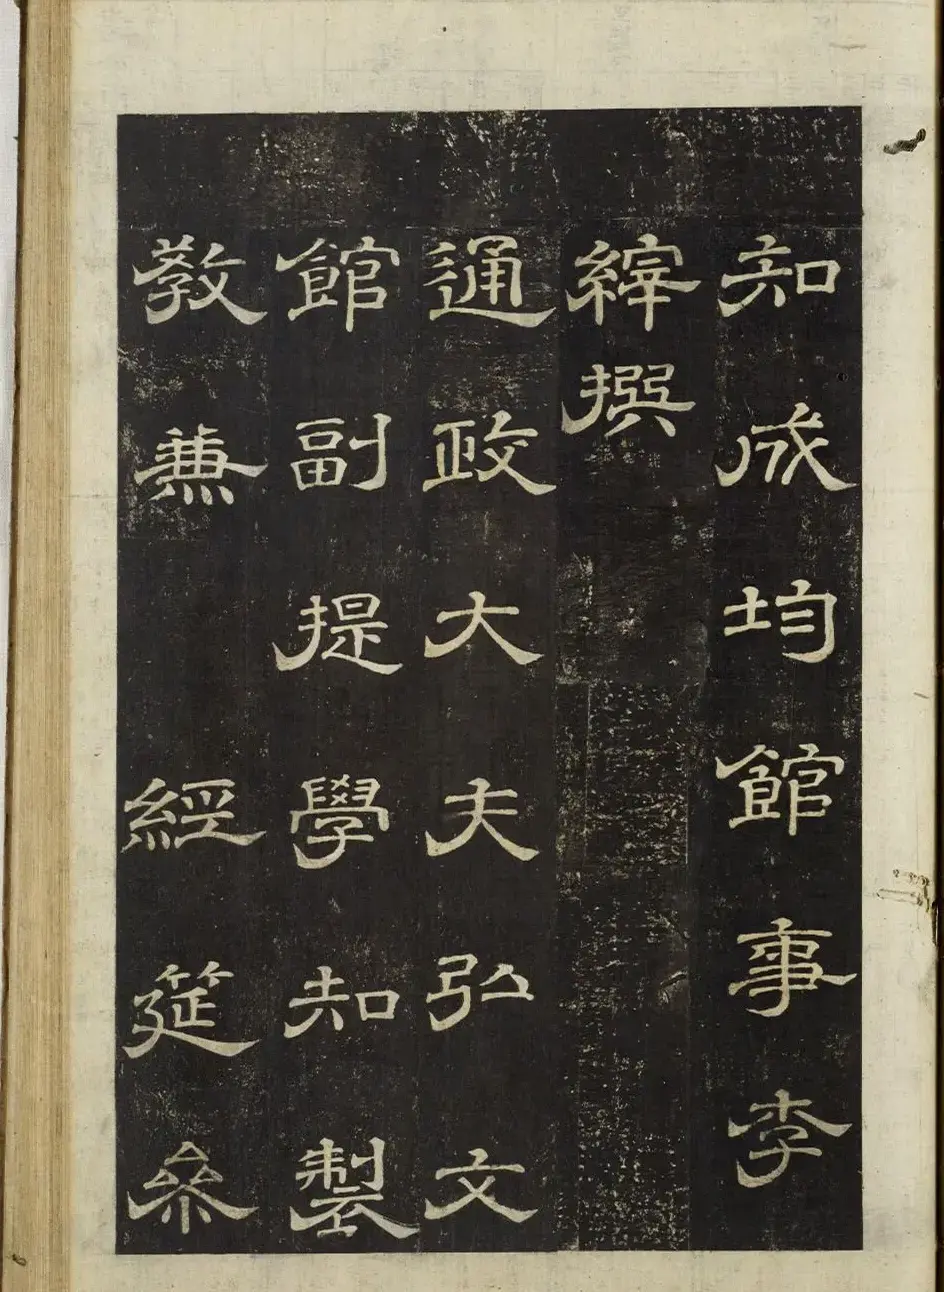 知成均館事李
縡撰
通政大夫弘文
館副提學知製
敎兼經筵參